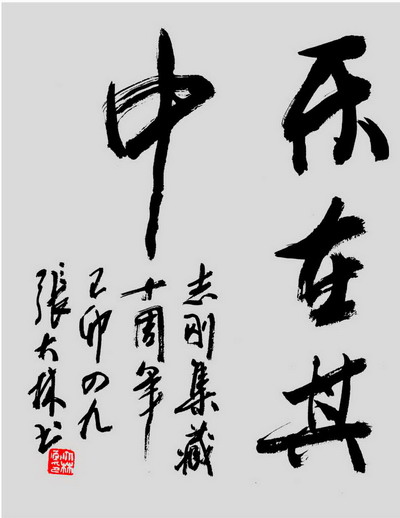 乐在其
中
志刚集藏
十周年
己卯四九
张大林书